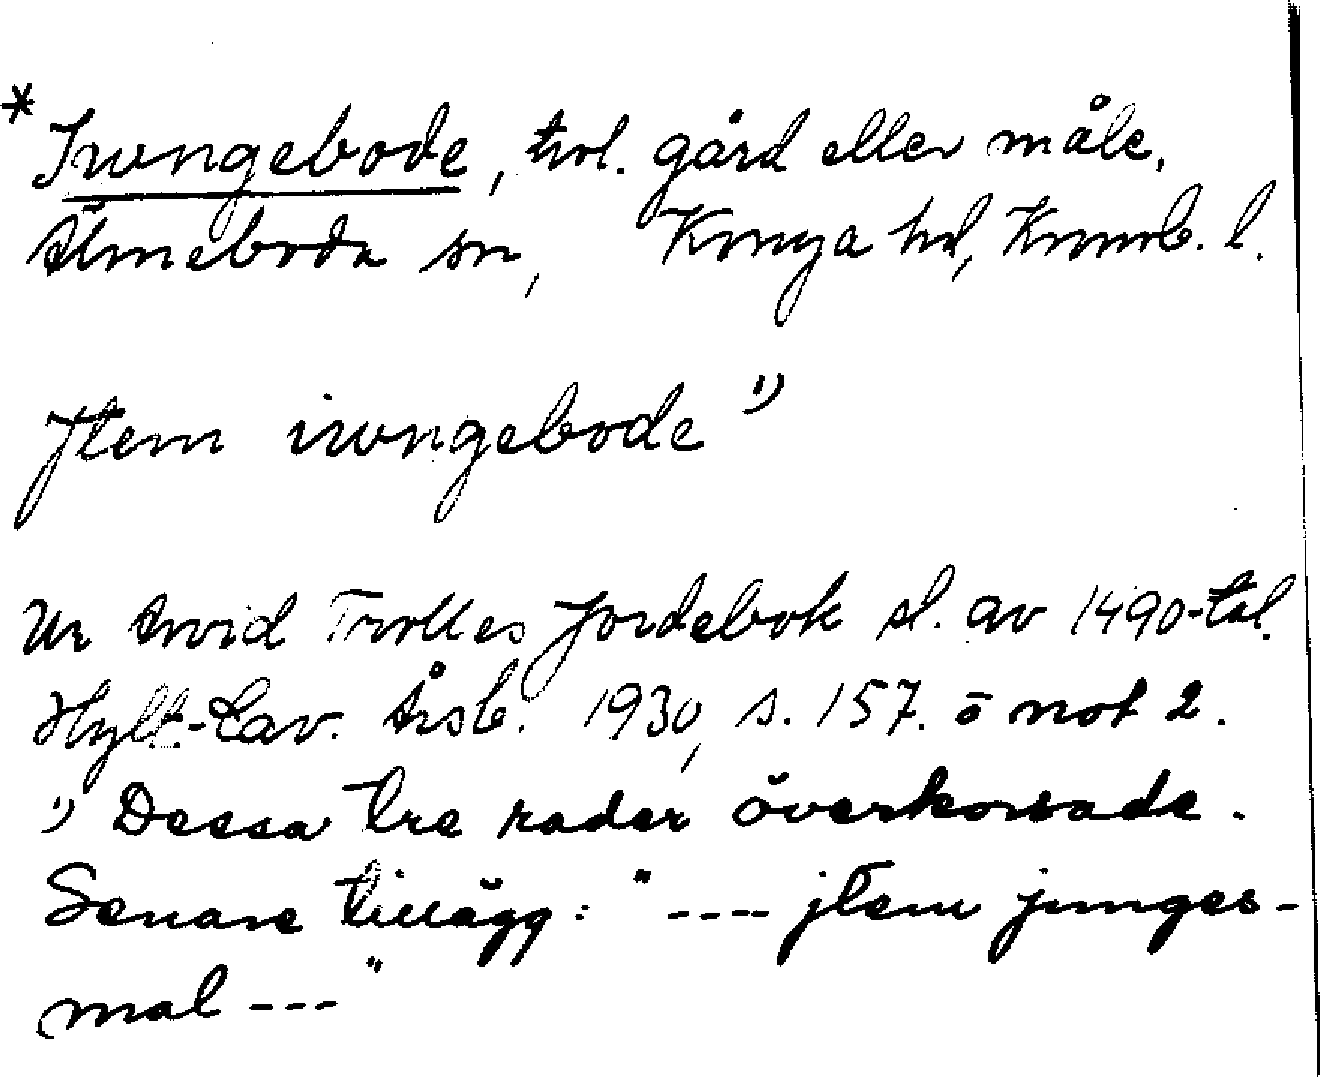 * Irwngebode, trol. gård eller måle,
Älmeboda sn, Konga hd, Kronob. l.
Jtem irwngebode 1)
Ur Arvid Trolles Jordebok sl. av 1490-tal.
Hylt.-Cav. Årsb. 1930, s. 157. o not 2.
1) Dessa tre rader överkorsade.
Senare tillägg: "---- jtem junges-
mal ---"